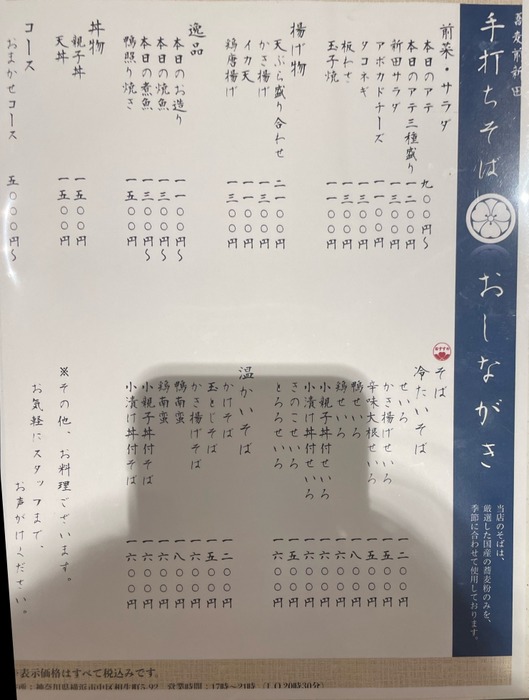 蕎麦前新田
手打ちそば おしながき
当店のそばは、
厳選した国産の蕎麦粉のみを、
季節に合わせて使用しております。
前菜・サラダ
本日のアテ 九〇〇円〜
本日のアテ三種盛り 一二〇〇円
新田サラダ
アボカドチーズ 一一〇〇円
タコネギ 一三〇〇円
板わさ 一三〇〇円
玉子焼 一一〇〇円
揚げ物
天ぷら盛り合わせ 二一〇〇円
かき揚げ 一三〇〇円
イカ天 一一〇〇円
鶏唐揚げ 一三〇〇円
逸品
本日のお造り 一一〇〇円〜
本日の焼魚 一三〇〇円
本日の煮魚 一三〇〇円〜
鴨照り焼き 一五〇〇円
丼物
親子丼 一五〇〇円
天丼 一五〇〇円
コース
おまかせコース 五〇〇〇円〜
そば
冷たいそば
せいろ 一二〇〇円
かき揚げせいろ 一五〇〇円
辛味大根せいろ 一五〇〇円
鴨せいろ 一八〇〇円
鶏せいろ 一六〇〇円
小親子丼付せいろ 一六〇〇円
小漬け丼付せいろ 一六〇〇円
きのこせいろ 一五〇〇円
とろろせいろ 一六〇〇円
温かいそば
かけそば 一二〇〇円
玉とじそば 一五〇〇円
かき揚げそば 一六〇〇円
鴨南蛮 一八〇〇円
鶏南蛮 一六〇〇円
小親子丼付そば 一六〇〇円
小漬け丼付そば 一六〇〇円
※その他、お料理ございます。
お気軽にスタッフまで、
お声がけください。
表示価格はすべて税込みです。
所：神奈川県横浜市中区相生町5-92 営業時間：17時〜21時（L.O 20時30分）